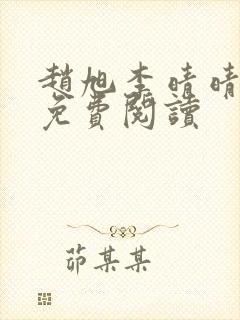 趙旭李晴晴
免費閱讀
茆某某